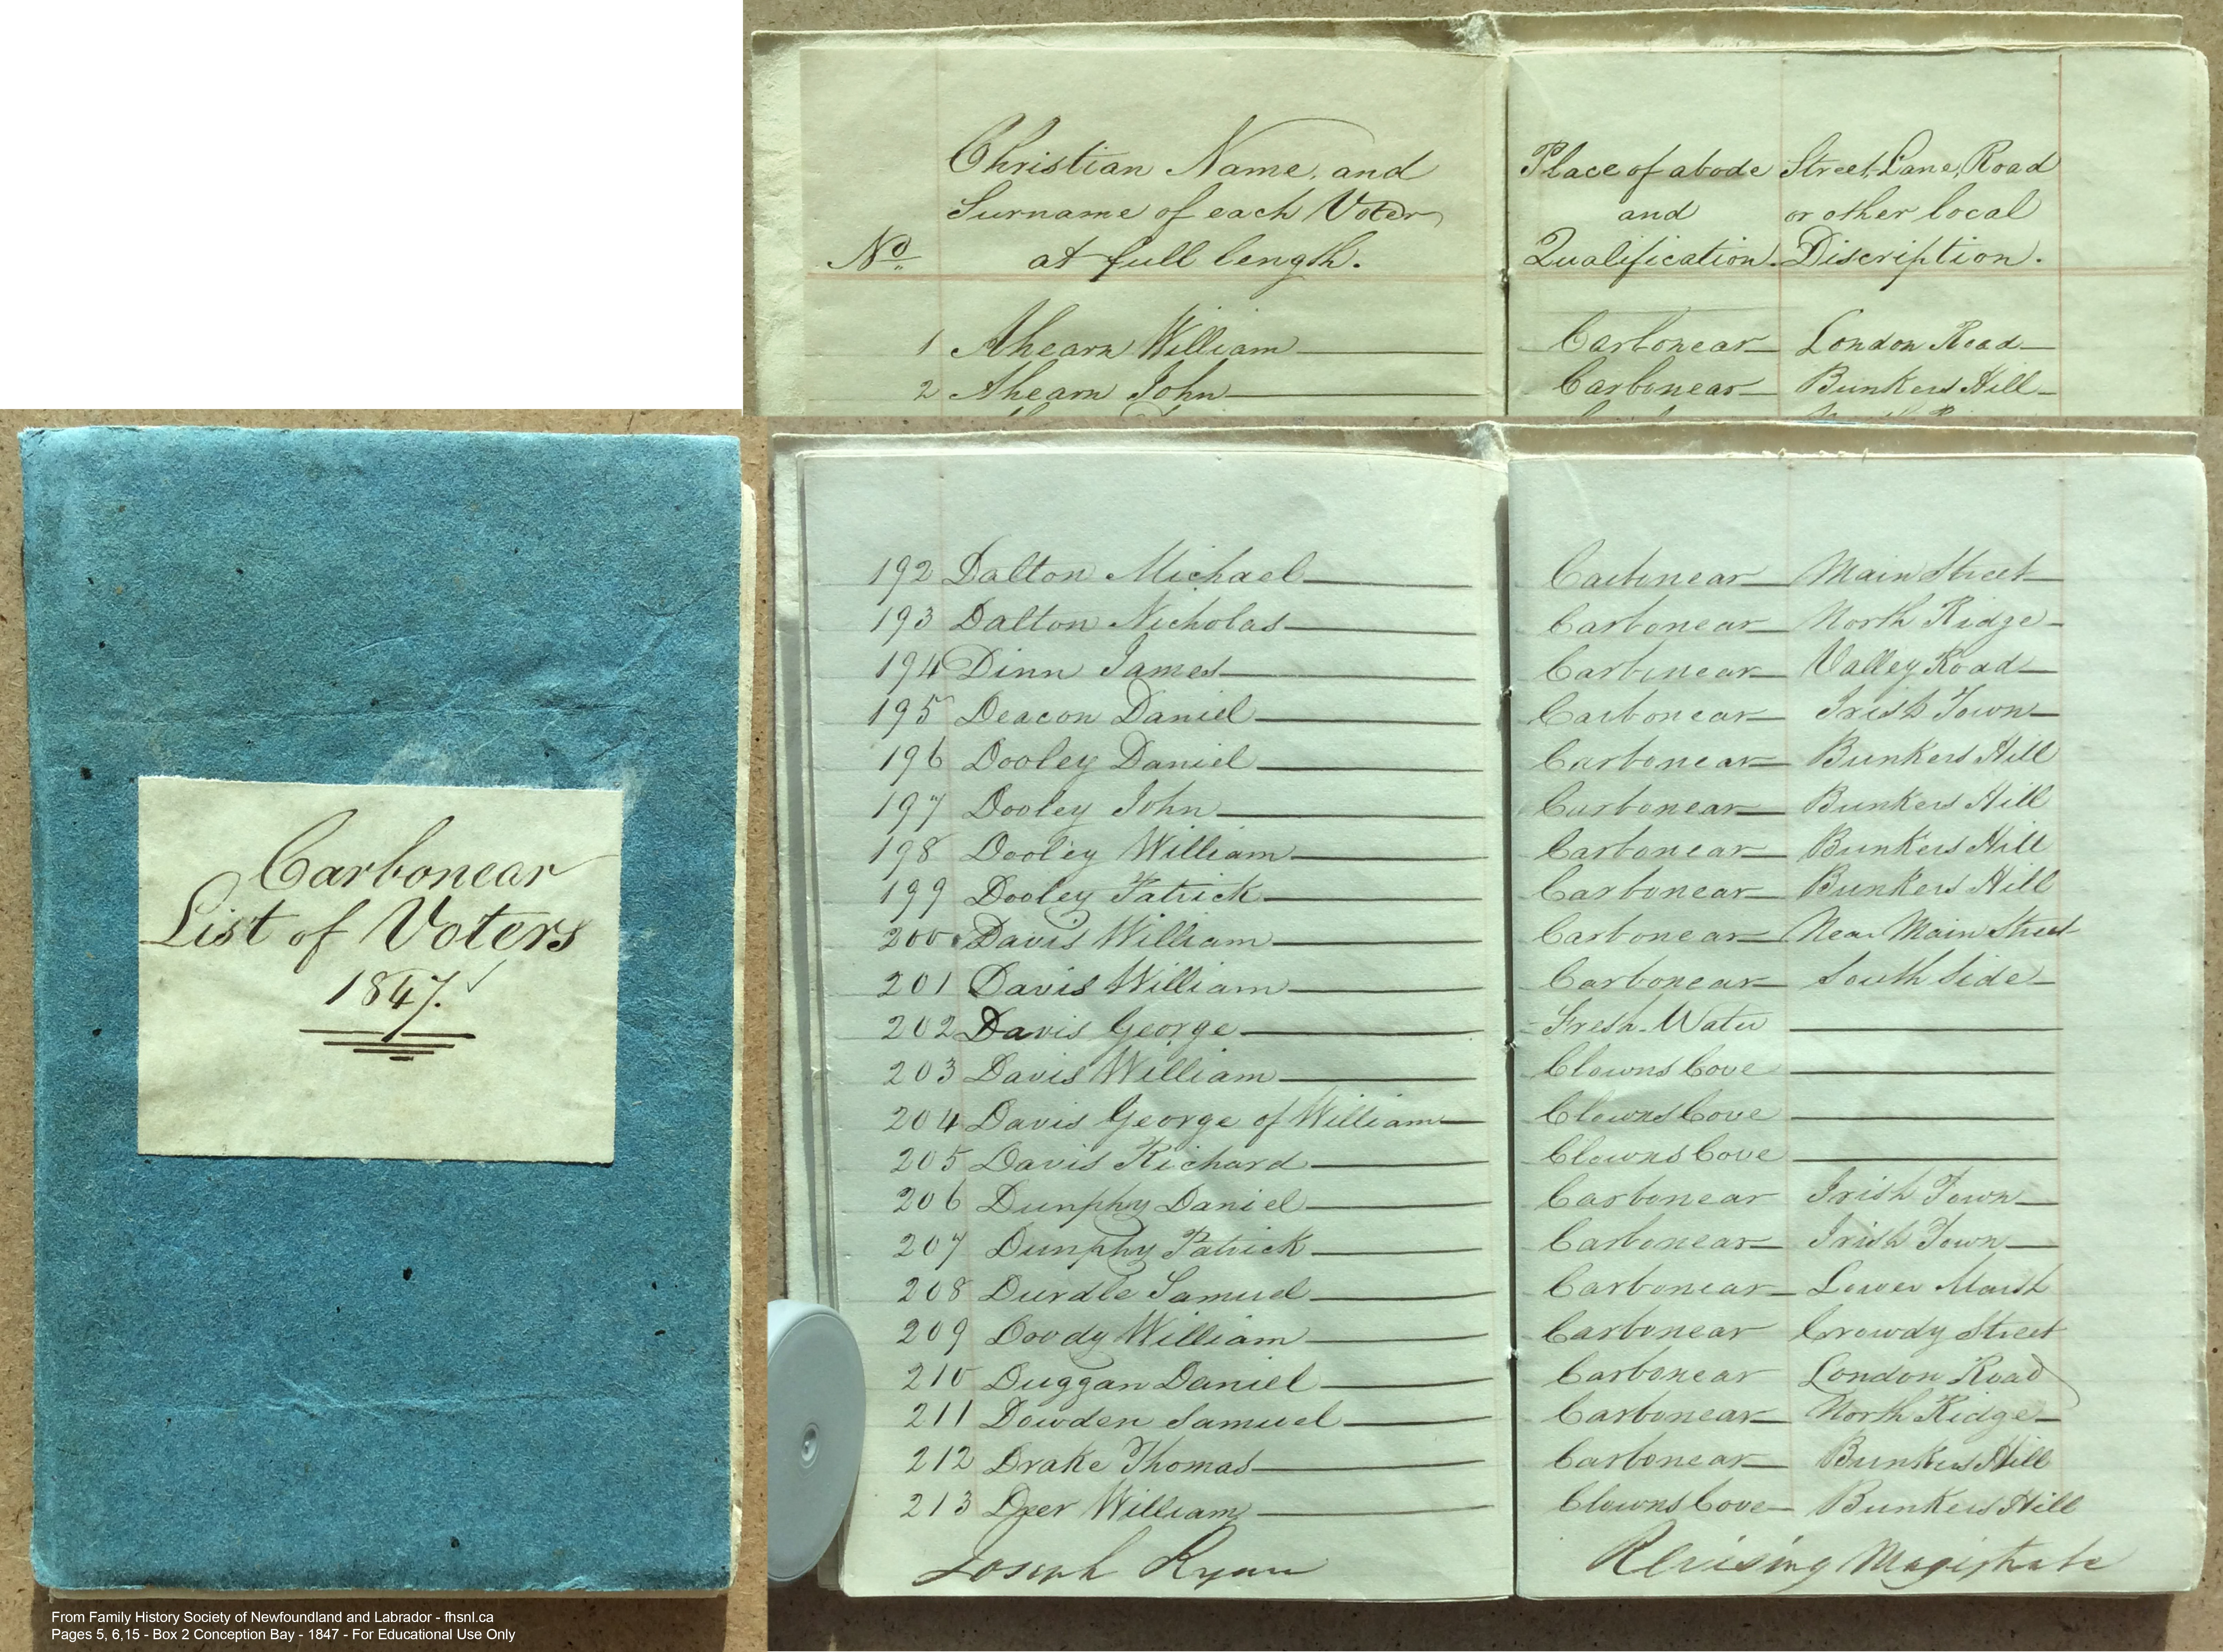 Christian Name, and
Surname of each Voter
No. at full length.
Place of abode
and
Qualification.
Street, Lane, Road
or other local
Discription.
1 Ahearn William Carbonear London Road
2 Ahearn John Carbonear Bunkers Hill
Carbonear
List of Voters
1847.
192 Dalton Michael Carbonear Main Street
193 Dalton Nicholas Carbonear North Ridge
194 Dinn James Carbonear Valley Road
195 Deacon Daniel Carbonear Irish Town
196 Dooley Daniel Carbonear Bunkers Hill
197 Dooley John Carbonear Bunkers Hill
198 Dooley William Carbonear Bunkers Hill
199 Dooley Patrick Carbonear Bunkers Hill
200 Davis William Carbonear Near Main Street
201 Davis William Carbonear South Side
202 Davis George Fresh-Water
203 Davis William Clowns Cove
204 Davis George of William Clowns Cove
205 Davis Richard Clowns Cove
206 Dunphy Daniel Carbonear Irish Town
207 Dunphy Patrick Carbonear Irish Town
208 Durdle Samuel Carbonear Lower Marsh
209 Doody William Carbonear Crowdy Street
210 Duggan Daniel Carbonear London Road
211 Dowden Samuel Carbonear North Ridge
212 Drake Thomas Carbonear Bunkers Hill
213 Deer William Clowns Cove Bunkers Hill
Joseph Ryan Revising Magistrate
From Family History Society of Newfoundland and Labrador - fhsnl.ca
Pages 5, 6,15 - Box 2 Conception Bay - 1847 - For Educational Use Only